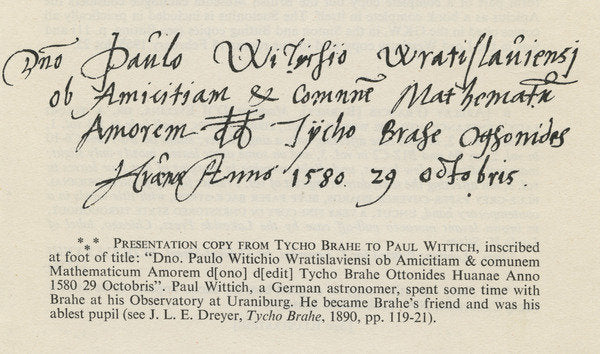 Dno Paulo Witichio Wratislauiensi
ob Amicitiam & Comunē Mathematū
Amorem dd Tÿcho Brahe Ottonides
Huænæ Anno 1580. 29 Octobris.
*** PRESENTATION COPY FROM TYCHO BRAHE TO PAUL WITTICH, inscribed
at foot of title: “Dno. Paulo Witichio Wratislaviensi ob Amicitiam & comunem
Mathematicum Amorem d[ono] d[edit] Tycho Brahe Ottonides Huanae Anno
1580 29 Octobris”. Paul Wittich, a German astronomer, spent some time with
Brahe at his Observatory at Uraniburg. He became Brahe’s friend and was his
ablest pupil (see J. L. E. Dreyer, Tycho Brahe, 1890, pp. 119-21).